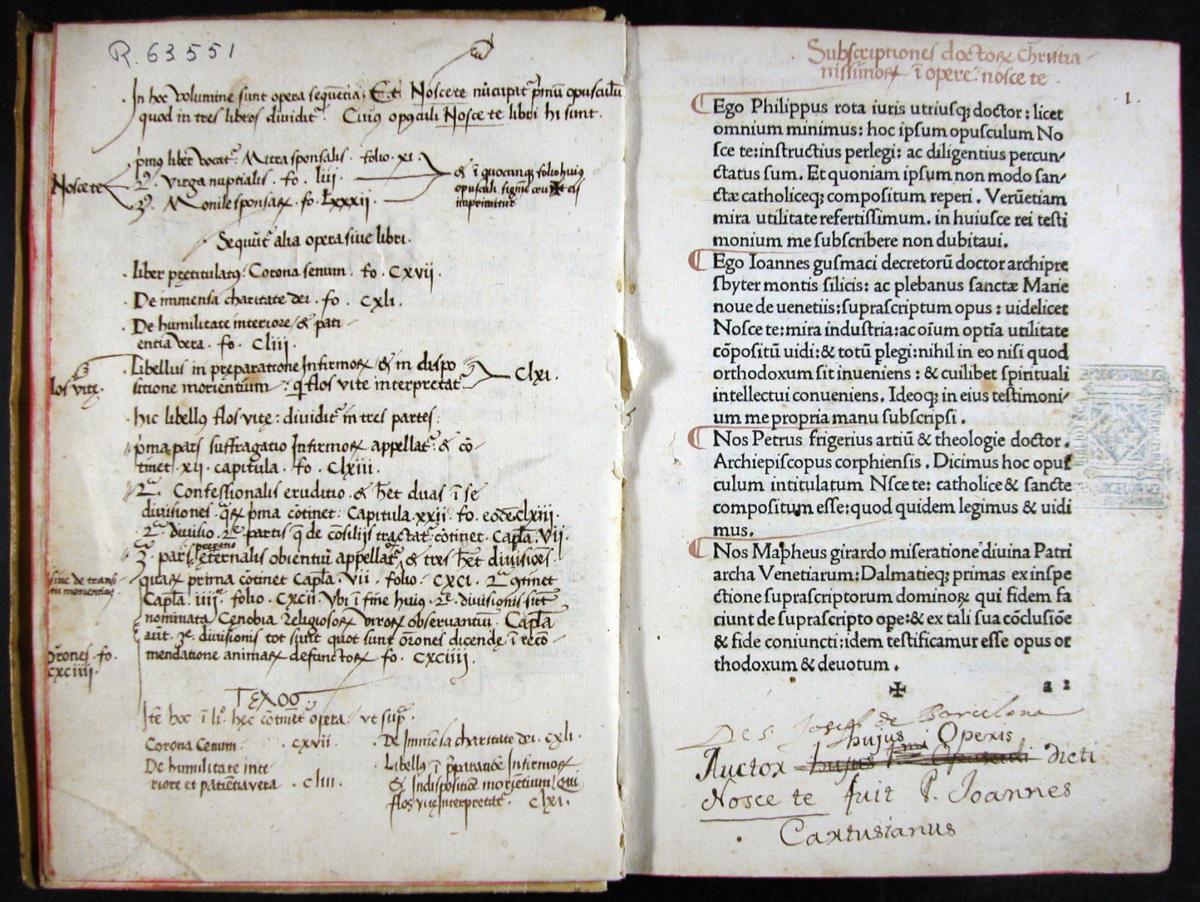 R. 63551
In hoc volumine sunt opera sequētia: Et Nosce te nūcupat᷒ pmū opusculū
quod in tres libros dividit᷒. Cuius opusculi Nosce te libri hi sunt.
pmus liber vocat᷒. Mitra sponsalis. folio. xi.
Nosce te
2᷒. Virga nuptialis. fo. liii.
3᷒. Monile sponsaꝝ. fo. Lxxxii.
& ī quocunqꝫ folio huius
opusculi signū ✠ eis
imprimitur
Sequūt᷒ alia opera sive libri.
. liber prętitulatus: Corona senum. fo. Cxvii.
. De immensa charitate dei. fo. Cxli.
. De humilitate interiore, & pati-
entia vera. fo. Cliii.
Libellus in preparatione Infirmoꝝ & in dispo
sitione morientium. q flos vite interpretat᷒ Clxi.
los vitę.
. hic libellus flos vitę: dividit᷒ in tres partes:
pma pars suffragatio Infirmoꝝ appellat᷒. & cō-
tinet. xii. capitula. fo. Clxiii.
2᷒. Confessionalis eruditio. & het duas ī se
divisiones qꝝ pma cōtinet: Capitula. xxii. fo. clxiii.
2᷒. divisio. 2ę partis q de cōsiliis tractat᷒ cōtinet. Capla. vii.
3᷒. pars eternalis obientiū appellat᷒, & tres het divisiones.
quaꝝ prima cōtinet Capla. vii. folio. cxci. 2᷒ cōtinet
Capla. iiii᷒. folio. cxcii. Vbi ī fine huius. 2ę. divisionis sūt
nominata Cenobia religiosoꝝ viroꝝ observantiū. Capla
aūt. 3ę. divisionis tot sunt quot sunt ōrones dicendę ī reco-
mendatione animaꝝ defunctoꝝ fo. cxciiii.
sive de trans-
itu morientiū.
Orones. fo.
cxciiii.
Itē hoc ī lio. hęc cōtinent᷒ opera vt sup᷒.
Corona Cenum . cxvii.
De humilitate inte
riore et patientia vera . cliii.
. De Immēsa charitate dei. cxli.
. Libellus ī pparatione Infirmoꝝ
& In dispositiōe morientium qui
flos vitę Interpretat᷒. clxi.
Subscriptiones doctoꝝ christia-
nissimoꝝ ī opere nosce te.
1.
Ego Philippus rota iuris utriusqꝫ doctor: licet
omnium minimus: hoc ipsum opusculum No
sce te: instructius perlegi: ac diligentius percun-
ctatus sum. Et quoniam ipsum non modo san-
ctæ catholiceqꝫ compositum reperi. Verūetiam
mira utilitate refertissimum. in huiusce rei testi
monium me subscribere non dubitaui.
Ego Ioannes gusmaci decretorū doctor archipre
sbyter montis silicis: ac plebanus sanctæ Marie
noue de uenetiis: suprascriptum opus: uidelicet
Nosce te: mira industria: ac oīum optīa utilitate
cōpositū uidi: & totū plegi: nihil in eo nisi quod
orthodoxum sit inueniens: & cuilibet spirituali
intellectui conueniens. Ideoqꝫ in eius testimoni-
um me propria manu subscripsi.
Nos Petrus frigerius artiū & theologie doctor.
Archiepiscopus corphiensis. Dicimus hoc opus
culum intitulatum Nsce te: catholice & sancte
compositum esse: quod quidem legimus & uidi
mus.
Nos Mapheus girardo miseratione diuina Patri
archa Venetiarum: Dalmatieqꝫ primas ex inspe
ctione suprascriptorum dominoꝝ qui fidem fa
ciunt de suprascripto ope: & ex tali sua cōclusiōe
& fide coniuncti: idem testificamur esse opus or
thodoxum & deuotum.
✠ a 2
De S. Joseph de Barcelona
hujus Operis
Auctor dicti
Nosce te fuit P. Joannes
Cartusianus